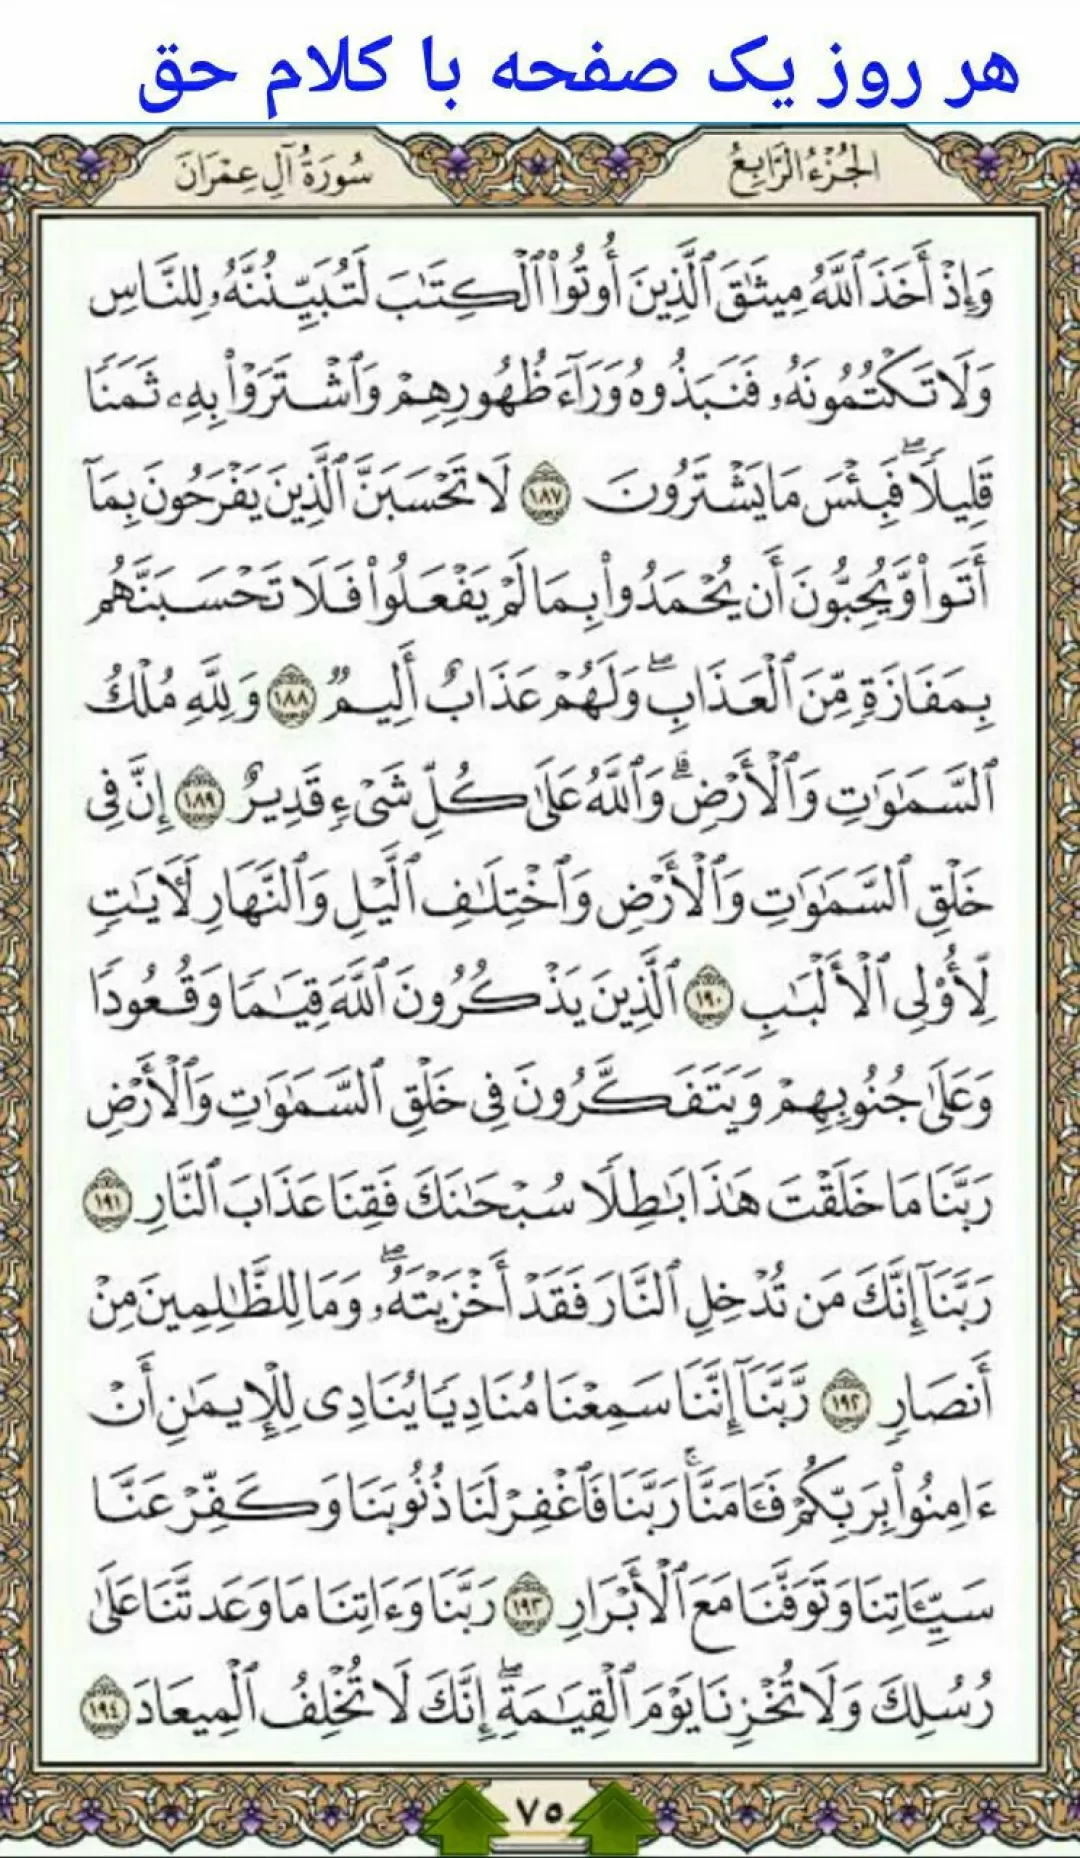 هر روز یک صفحه با کلام حق
الجُزْءُ الرَّابِعُ
سُورَةُ آلِ عِمْرَانَ
وَإِذْ أَخَذَ ٱللَّهُ مِيثَٰقَ ٱلَّذِينَ أُوتُوا۟ ٱلْكِتَٰبَ لَتُبَيِّنُنَّهُۥ لِلنَّاسِ
وَلَا تَكْتُمُونَهُۥ فَنَبَذُوهُ وَرَآءَ ظُهُورِهِمْ وَٱشْتَرَوْا۟ بِهِۦ ثَمَنًا
قَلِيلًا ۖ فَبِئْسَ مَا يَشْتَرُونَ ١٨٧ لَا تَحْسَبَنَّ ٱلَّذِينَ يَفْرَحُونَ بِمَآ
أَتَوا۟ وَّيُحِبُّونَ أَن يُحْمَدُوا۟ بِمَا لَمْ يَفْعَلُوا۟ فَلَا تَحْسَبَنَّهُم
بِمَفَازَةٍ مِّنَ ٱلْعَذَابِ ۖ وَلَهُمْ عَذَابٌ أَلِيمٌ ١٨٨ وَلِلَّهِ مُلْكُ
ٱلسَّمَٰوَٰتِ وَٱلْأَرْضِ ۗ وَٱللَّهُ عَلَىٰ كُلِّ شَىْءٍ قَدِيرٌ ١٨٩ إِنَّ فِى
خَلْقِ ٱلسَّمَٰوَٰتِ وَٱلْأَرْضِ وَٱخْتِلَٰفِ ٱلَّيْلِ وَٱلنَّهَارِ لَءَايَٰتٍ
لِّأُو۟لِى ٱلْأَلْبَٰبِ ١٩٠ ٱلَّذِينَ يَذْكُرُونَ ٱللَّهَ قِيَٰمًا وَقُعُودًا
وَعَلَىٰ جُنُوبِهِمْ وَيَتَفَكَّرُونَ فِى خَلْقِ ٱلسَّمَٰوَٰتِ وَٱلْأَرْضِ
رَبَّنَا مَا خَلَقْتَ هَٰذَا بَٰطِلًا سُبْحَٰنَكَ فَقِنَا عَذَابَ ٱلنَّارِ ١٩١
رَبَّنَآ إِنَّكَ مَن تُدْخِلِ ٱلنَّارَ فَقَدْ أَخْزَيْتَهُۥ ۖ وَمَا لِلظَّٰلِمِينَ مِنْ
أَنصَارٍ ١٩٢ رَّبَّنَآ إِنَّنَا سَمِعْنَا مُنَادِيًا يُنَادِى لِلْإِيمَٰنِ أَنْ
ءَامِنُوا۟ بِرَبِّكُمْ فَـَٔامَنَّا ۚ رَبَّنَا فَٱغْفِرْ لَنَا ذُنُوبَنَا وَكَفِّرْ عَنَّا
سَيِّـَٔاتِنَا وَتَوَفَّنَا مَعَ ٱلْأَبْرَارِ ١٩٣ رَبَّنَا وَءَاتِنَا مَا وَعَدتَّنَا عَلَىٰ
رُسُلِكَ وَلَا تُخْزِنَا يَوْمَ ٱلْقِيَٰمَةِ ۗ إِنَّكَ لَا تُخْلِفُ ٱلْمِيعَادَ ١٩٤
٧٥